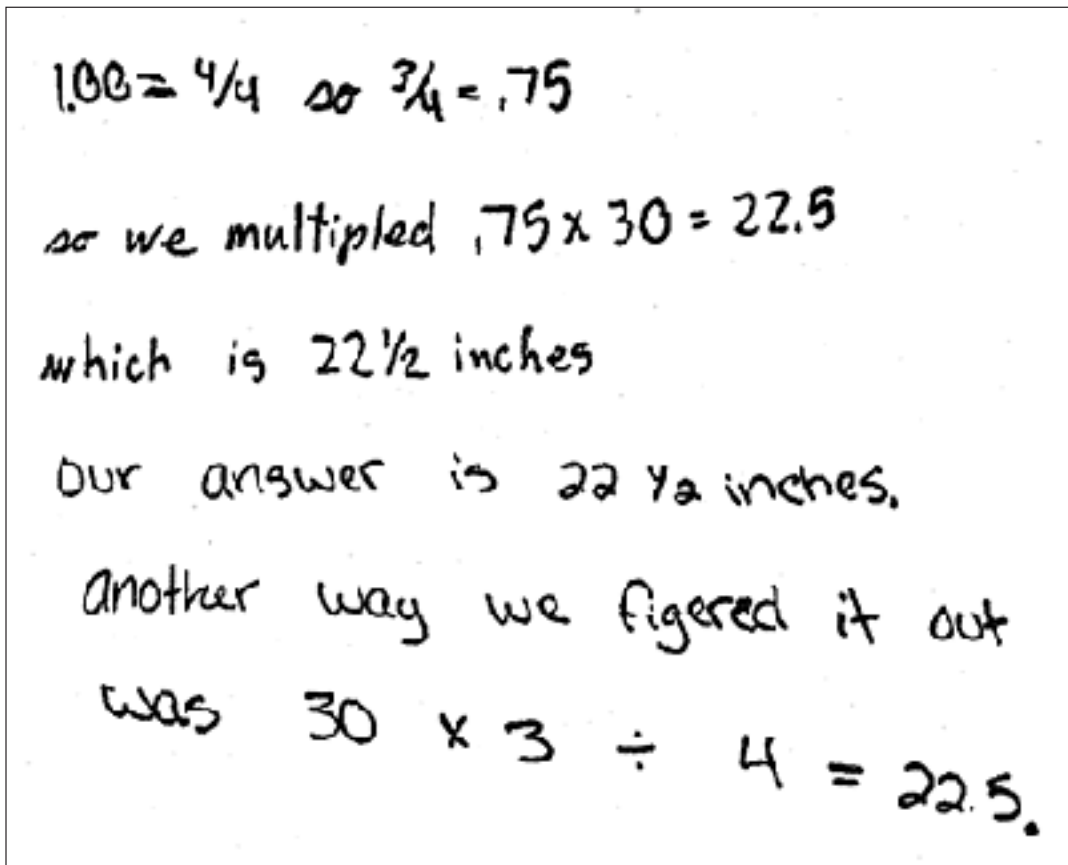 1.00 = 4/4 so 3/4 = .75
so we multipled .75 x 30 = 22.5
which is 22 1/2 inches
our answer is 22 1/2 inches.
another way we figered it out
was 30 x 3 ÷ 4 = 22.5.